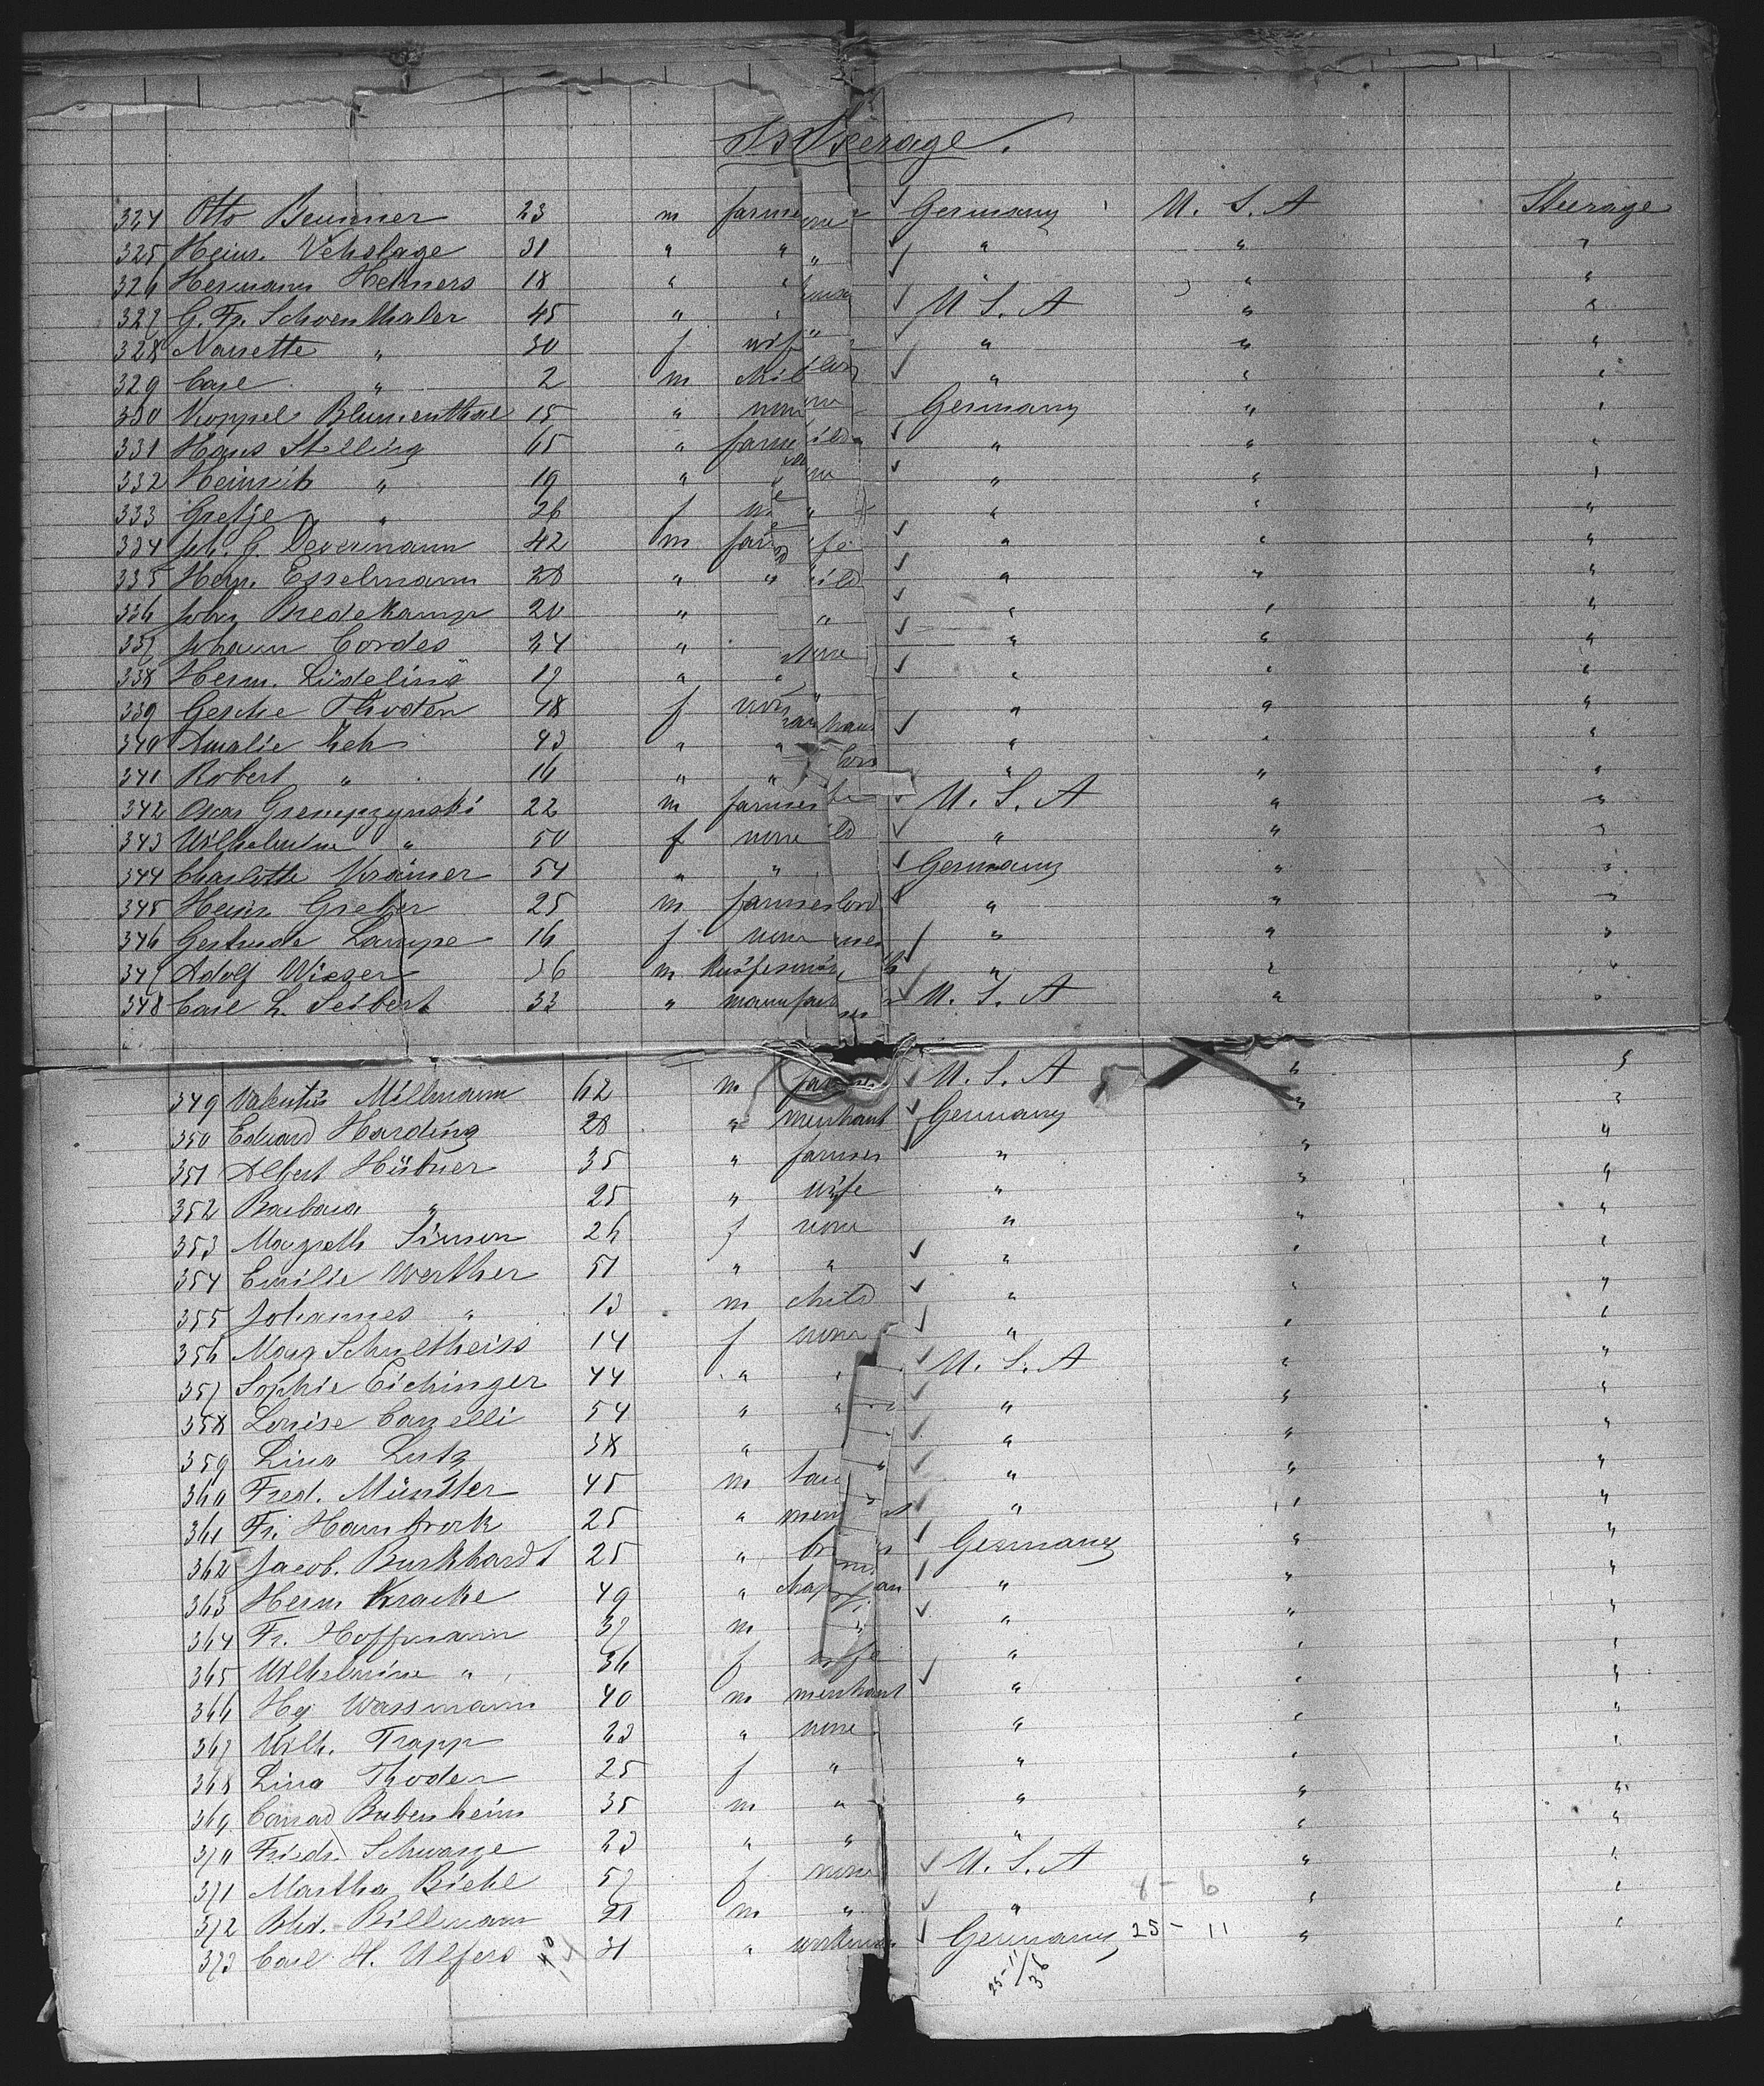 Steerage.
324 Otto Brunner 23 m farmer Germany U. S. A Steerage
325 Heinr. Vehslage 31 " " " " "
326 Hermann Helmers 18 " " " " "
327 G. Fr. Schoenthaler 45 " U. S. A " "
328 Nanette " 30 f wife " " "
329 Carl " 2 m child " " "
330 Koppel Blumenthal 15 " none Germany " "
331 Hans Stelling 65 " farmer " " "
332 Heinrich " 19 " " " " "
333 Gretje " 26 f " " "
334 Joh. G. Devermann 42 m " " "
335 Herm. Esselmann 28 " " " " "
336 John Bredekamp 20 " " " "
337 Johann Cordes 24 " " " "
338 Herm. Lüdeling 17 " " " " "
339 Gesche Thoden 48 f none " " "
340 Amalie Zeh 43 " " " " "
341 Robert " 16 " " " " "
342 Oscar Grempzynski 22 m farmer U. S. A " "
343 Wilhelmine " 50 f none " " "
344 Charlotte Krämer 54 " " Germany " "
345 Heinr. Greber 25 m farmer " " "
346 Gertrude Lampe 16 f none " " "
347 Adolf Wieser 36 m " " "
348 Carl L. Seibert 33 " U. S. A " "
349 Valentin Millmann 62 m U. S. A " "
350 Eduard Harding 28 " merchant Germany " "
351 Albert Hübner 35 " farmer " " "
352 Barbara " 25 " wife " " "
353 Magreth Simon 26 f none " " "
354 Emilie Werther 51 " " " " "
355 Johannes " 13 m child " " "
356 Marg Schultheiss 14 f none " " "
357 Sophie Eichinger 44 " " U. S. A " "
358 Louise Canelli 54 " " " " "
359 Lina Lutz 38 " " " " "
360 Fred. Münster 45 m " " "
361 Fr. Hambrock 25 " " " "
362 Jacob. Burkhardt 25 " Germany " "
363 Herm Kracke 49 " " " "
364 Fr. Hoffmann 37 m " " " "
365 Wilhelmine " 36 f wife " " "
366 Hy Wassmann 40 m merchant " " "
367 Wilh. Trapp 23 " none " " "
368 Lina Thoden 25 f " " " "
369 Conrad Bubenheim 35 m " " " "
370 Friedr. Schwarze 23 " " " " "
371 Martha Biehl 57 f none U. S. A " "
372 Bhd. Billmann 21 m " " " "
373 Carl H. Ulfers 31 " workman Germany 25 - 11 " "
25-11/36